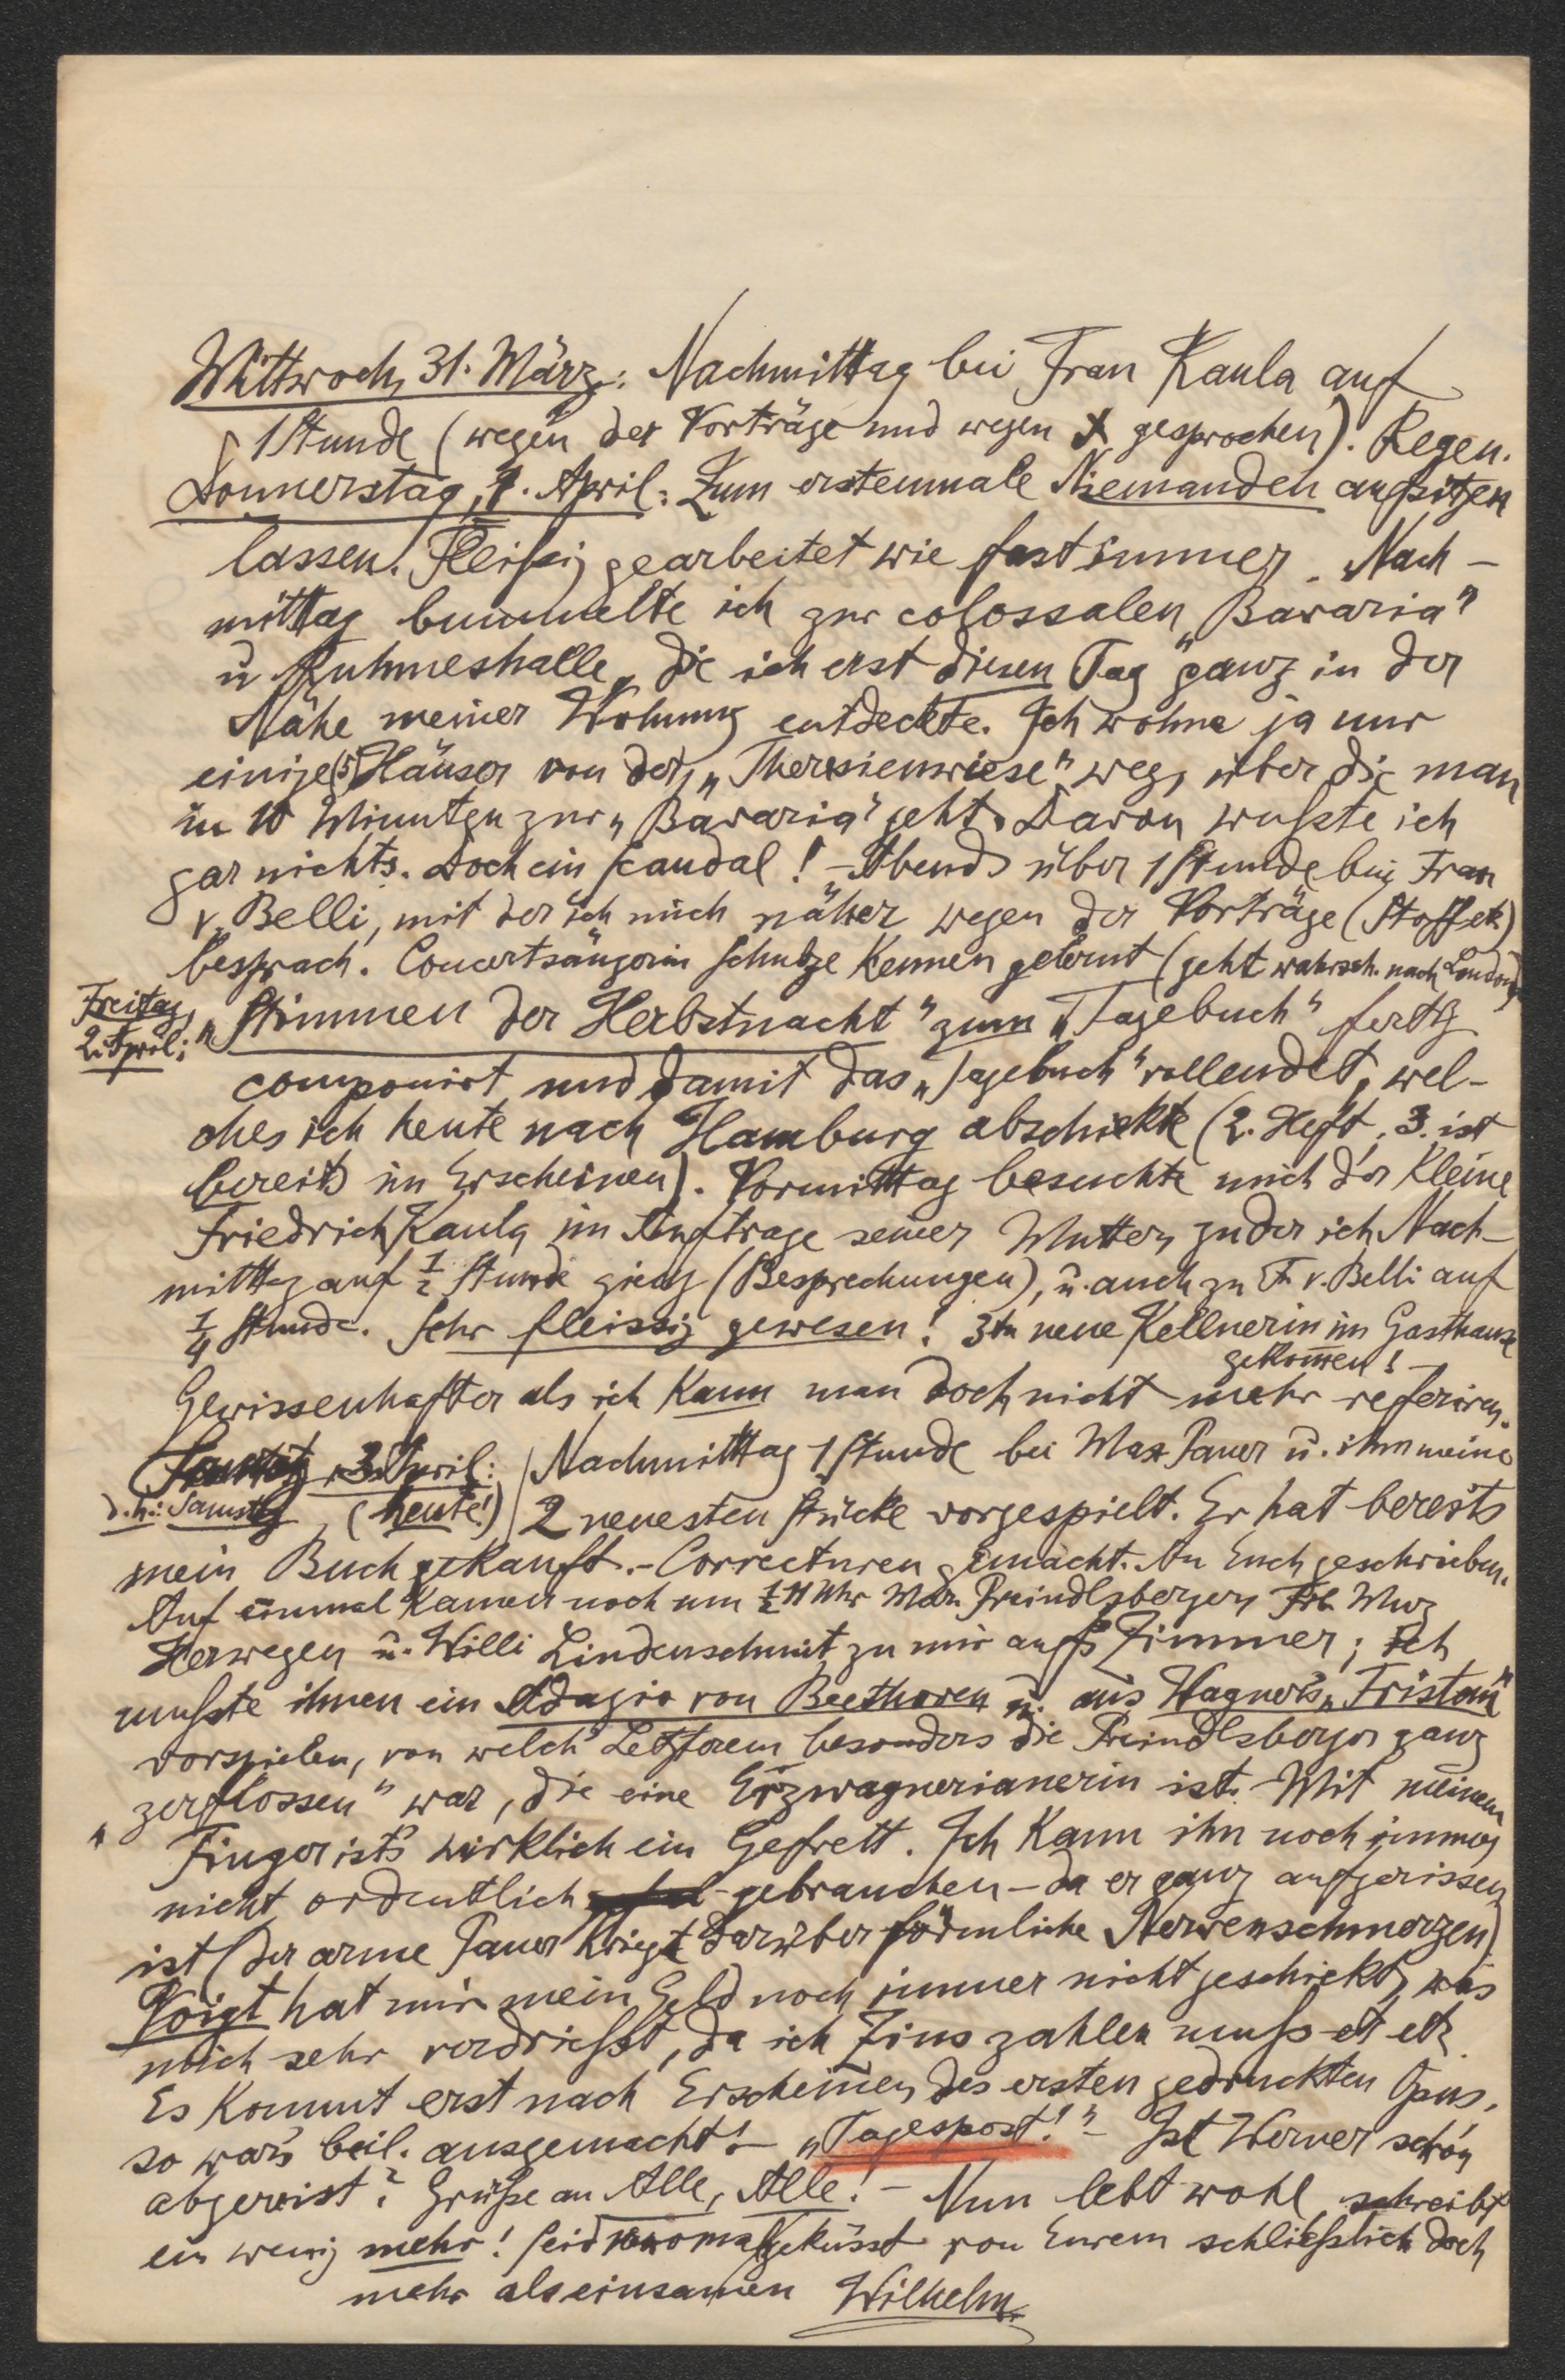 Mittwoch, 31. März: Nachmittag bei Frau Kaula auf
1 Stunde (wegen der Vorträge und wegen X gesprochen). Regen.
Donnerstag, 1. April: Zum erstenmale Niemanden aufsitzen
lassen. Fleißig gearbeitet wie fast immer. Nach-
mittag bummelte ich zur colossalen „Bavaria"
u Ruhmeshalle, die ich erst diesen Tag ganz in der
Nähe meiner Wohnung entdeckte. Ich wohne ja nur
einige (5) Häuser von der „Theresienwiese" weg, über die man
in 10 Minuten zur „Bavaria" geht. Davon wußte ich
gar nichts. Doch ein Scandal! – Abends über 1 Stunde bei Frau
v. Belli, mit der ich mich näher wegen der Vorträge (Stoff etc)
besprach. Concertsängerin Schulze kennen gelernt (geht wahrsch. nach London)
Freitag, 2. April: „Stimmen der Herbstnacht" zum „Tagebuch" fertig
componirt und damit das „Tagebuch" vollendet, wel-
ches ich heute nach Hamburg abschickte (2. Heft, 3. ist
bereits im Erscheinen). Vormittag besuchte mich der kleine
Friedrich Kaula im Auftrage seiner Mutter, zu der ich Nach-
mittag auf ½ Stunde gieng (Besprechungen), u. auch zu Fr v. Belli auf
¼ Stunde. Sehr fleissig gewesen! 3te neue Kellnerin im Gasthause
gekommen! –
Gewissenhafter als ich kann man doch nicht mehr referiren.
3. April: Nachmittag 1 Stunde bei Max Pauer u. ihm meine
d. h.: Samstag, (heute!) 2 neuesten Stücke vorgespielt. Er hat bereits
mein Buch gekauft. – Correcturen gemacht. An Euch geschrieben.
Auf einmal kamen noch um ½ 11 Uhr Preindlsberger, Frl.
Herwegen u. Willi Lindenschmit zu mir aufs Zimmer; ich
mußte ihnen ein Adagio von Beethoven u. aus Wagner's „Tristan"
vorspielen, von welch' Letzterem besonders die Preindlsberger ganz
„zerflossen" war, die eine Erzwagnerianerin ist. – Mit meinem
Finger ist's wirklich ein Gefrett. Ich kann ihn noch immer
nicht ordentlich gebrauchen – da er ganz aufgerissen
ist (der arme Pauer kriegt darüber förmliche Nervenschmerzen).
Voigt hat mir mein Geld noch immer nicht geschickt, was
mich sehr verdrießt, da ich Zins zahlen muß etc etc.
Es kommt erst nach Erscheinen des ersten gedruckten Opus,
so war's beil. ausgemacht! – „Tagespost!" – Ist Werner schon
abgereist? Grüße an Alle, Alle! – Nun lebt wohl, schreibt
ein wenig mehr! Seid geküsst von Eurem schließlich doch
mehr als einsamen Wilhelm.